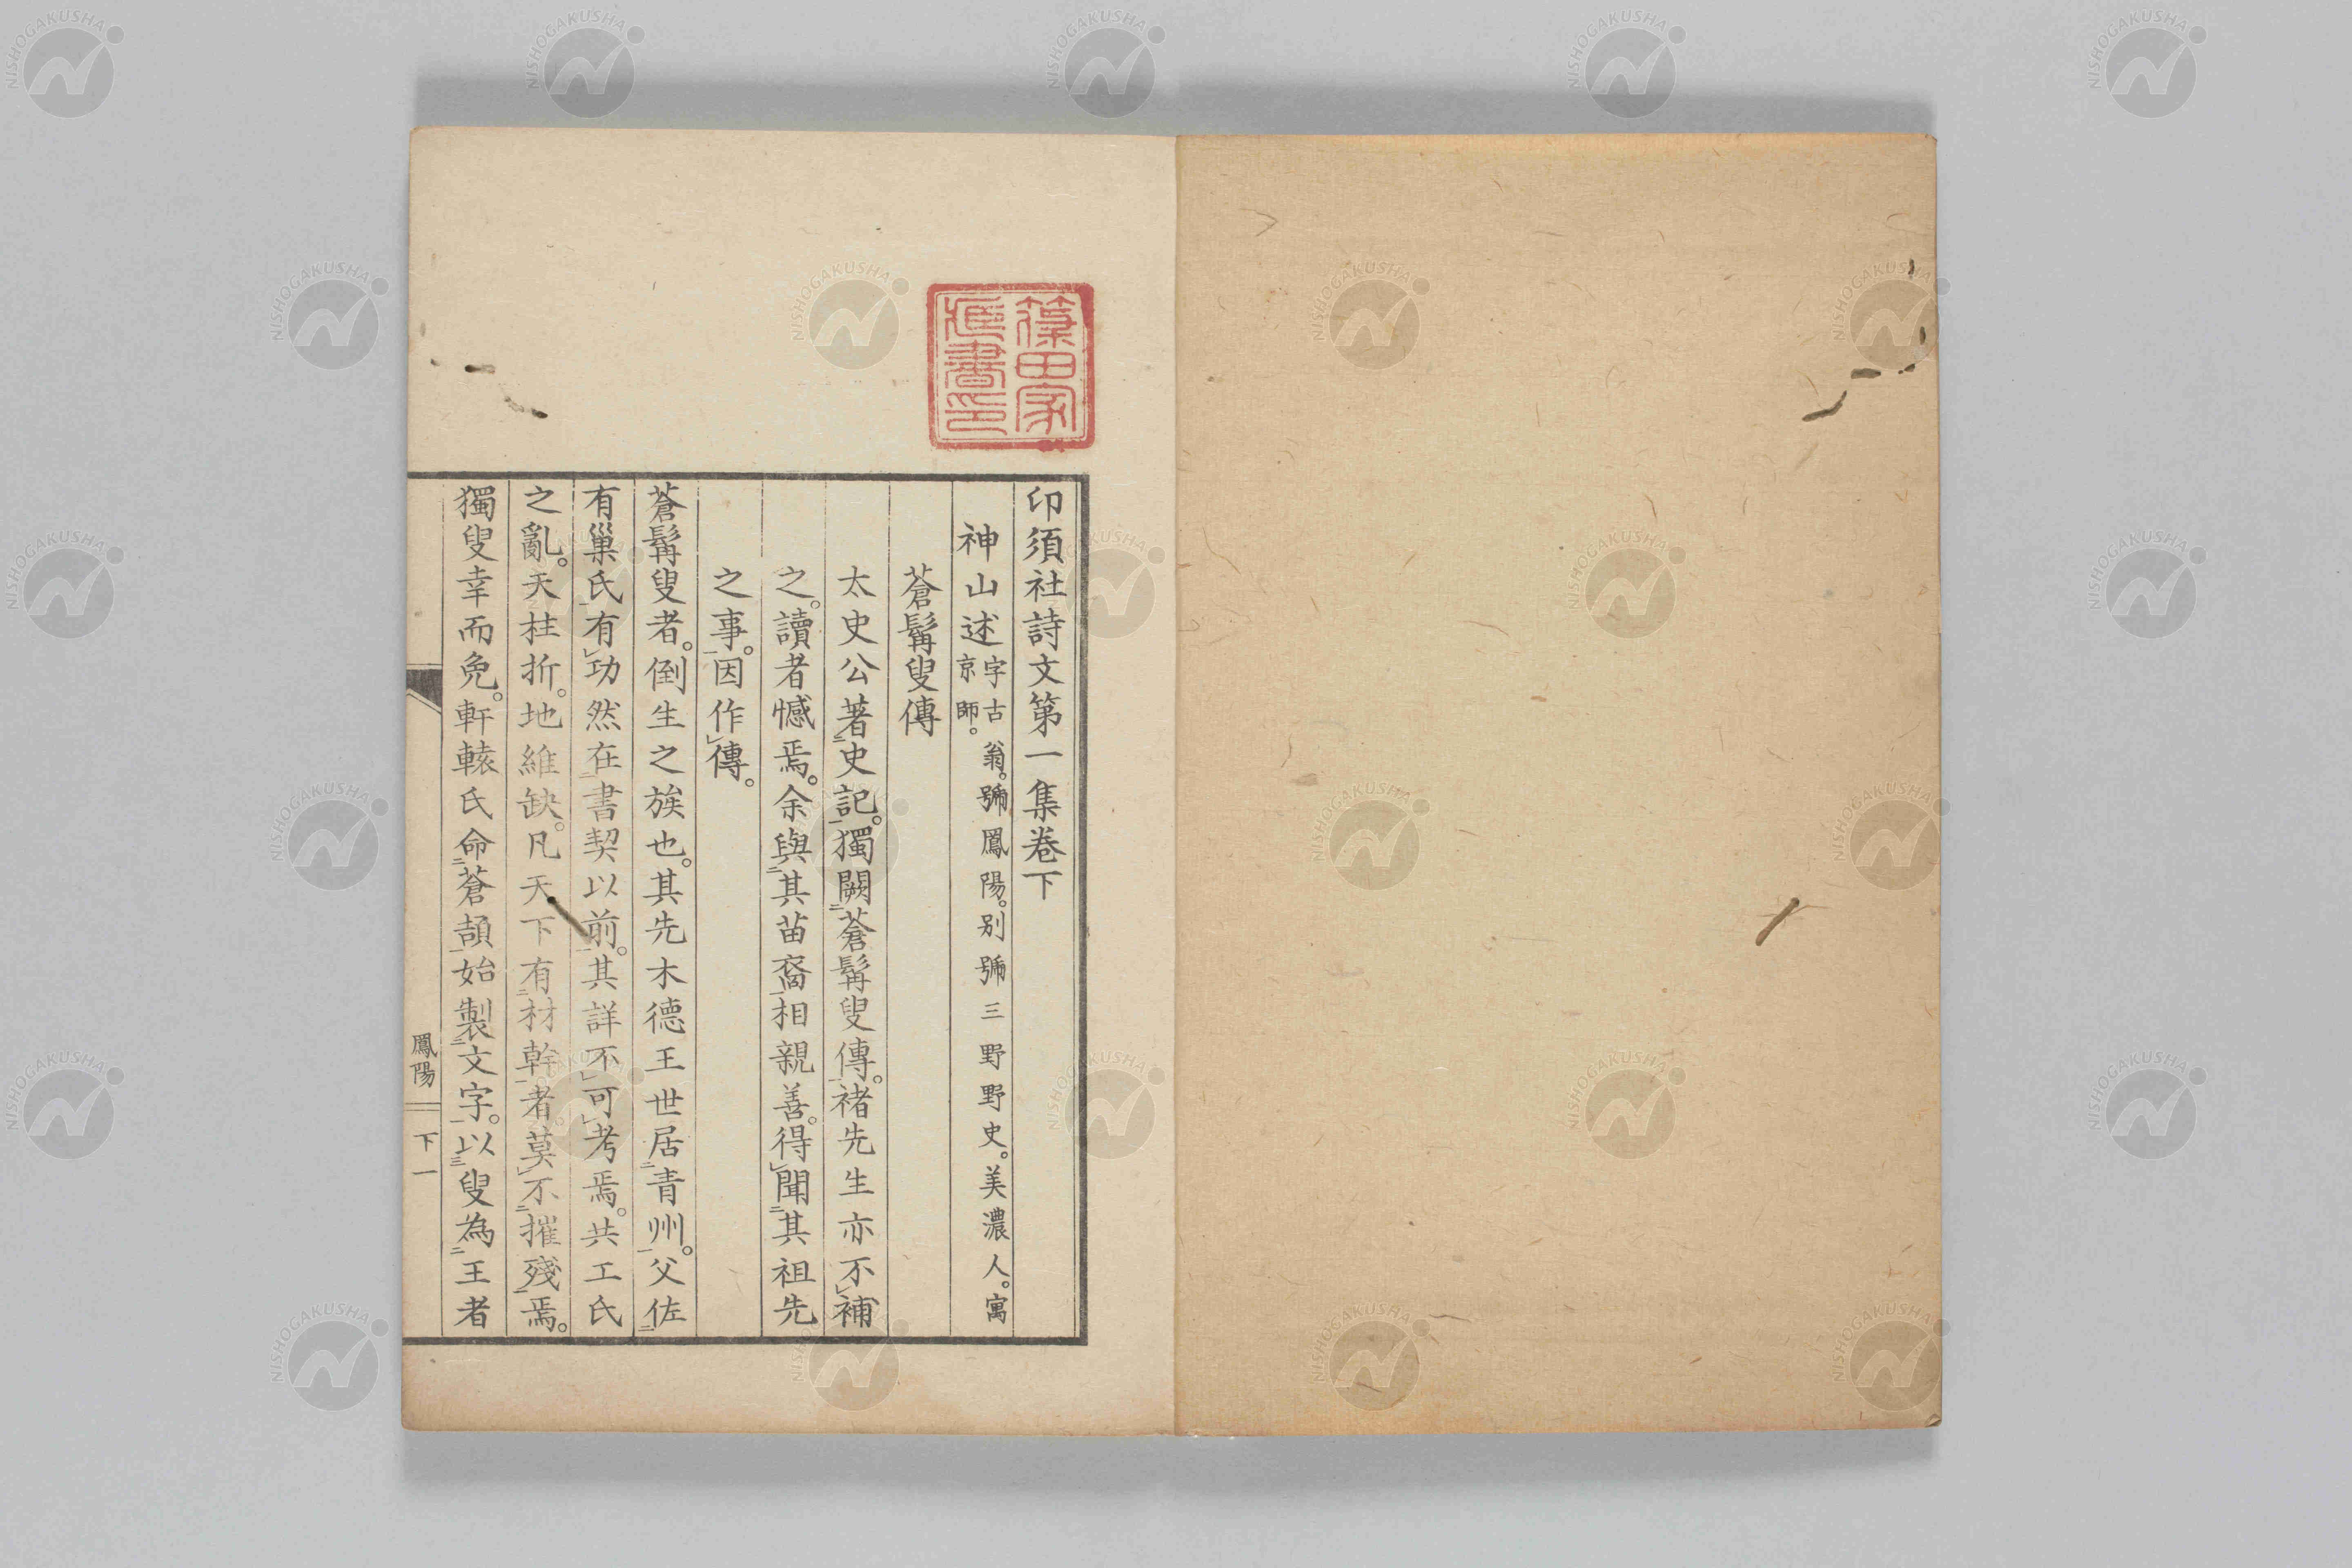 印須社詩文第一集卷下
神山述 字古翁。號鳳陽。別號三野野史。美濃人。寓京師。
蒼髯叟傳
太史公著㆓史記㆒。獨闕㆓蒼髯叟傳㆒。褚先生亦不㆑補
之。讀者憾焉。余與㆓其苗裔㆒相親善。得㆑聞㆓其祖先
之事㆒。因作㆑傳。
蒼髯叟者。倒生之族也。其先木德王世居㆓青州㆒。父佐㆓
有巢氏㆒有㆑功然在㆓書契以前㆒。其詳不㆑可㆑考焉。共工氏
之亂。天柱折。地維缺。凡天下有㆓材幹㆒者。莫㆑不㆓摧殘㆒焉。
獨叟幸而免。軒轅氏命㆓蒼頡㆒始製㆓文字㆒。以㆑叟為㆓王者
鳳陽 下一
篠田家藏書印
NISHOGAKUSHA